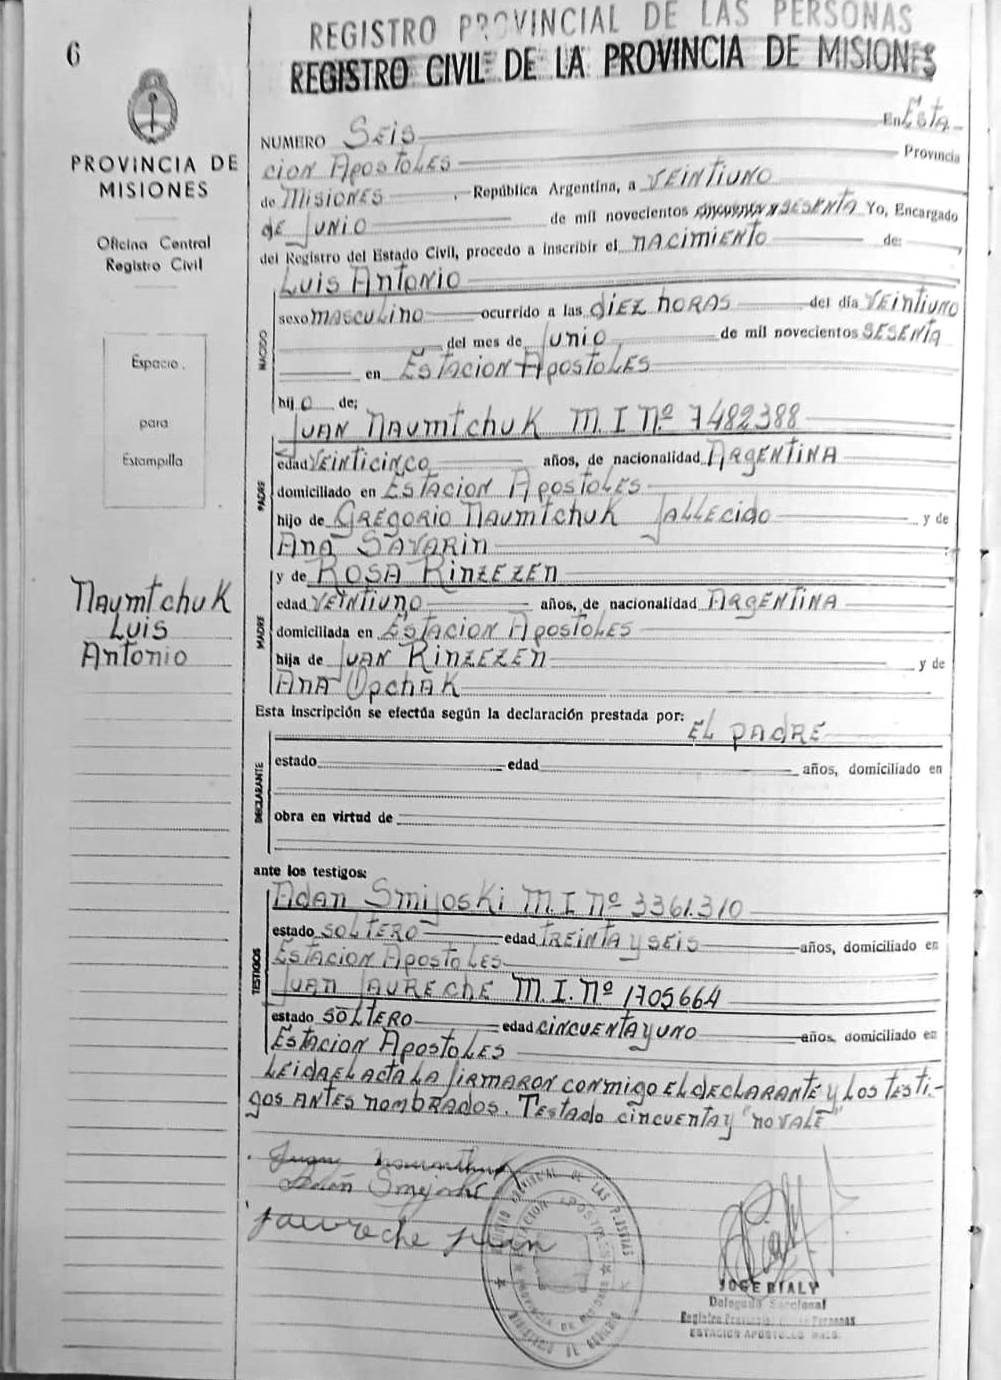 6
REGISTRO PROVINCIAL DE LAS PERSONAS
REGISTRO CIVIL DE LA PROVINCIA DE MISIONES
PROVINCIA DE
MISIONES
Oficina Central
Registro Civil
Espacio
para
Estampilla
Naumtchuk
Luis
Antonio
NUMERO Seis En Esta
cion Apostoles Provincia
de Misiones, República Argentina, a VEINTIUNO
de Junio de mil novecientos SESENTA Yo, Encargado
del Registro del Estado Civil, procedo a inscribir el nacimiento de:
Luis Antonio
NACIDO
sexo masculino ocurrido a las diez horas del día VEINTIUNO
del mes de Junio de mil novecientos SESENTA
en Estacion Apostoles
hijo de;
Juan Naumtchuk M. I Nº 7482388
PADRE
edad VEINTICINCO años, de nacionalidad ARGENTINA
domiciliado en Estacion Apostoles
hijo de Gregorio Naumtchuk fallecido y de
Ana Savarin
y de Rosa Kinzezen
MADRE
edad VEINTIUNO años, de nacionalidad ARGENTINA
domiciliada en Estacion Apostoles
hija de Juan Kinzezen y de
Ana Opchak
Esta inscripción se efectúa según la declaración prestada por:
EL PADRE
DECLARANTE
estado edad años, domiciliado en
obra en virtud de
ante los testigos:
Adan Smijoski M. I Nº 3361.310
TESTIGOS
estado SOLTERO edad TREINTA Y SEIS años, domiciliado en
Estacion Apostoles
Juan Jaureche M. I. Nº 1705664
estado SOLTERO edad CINCUENTA Y UNO años, domiciliado en
Estacion Apostoles
LEIDA EL ACTA LA FIRMARON CONMIGO EL DECLARANTE Y LOS TESTI-
gos ANTES NOMBRADOS. Testado cincuenta y "NO VALE"
Jaureche Juan
JOSE BIALY
Delegado Seccional
ESTACION APOSTOLES